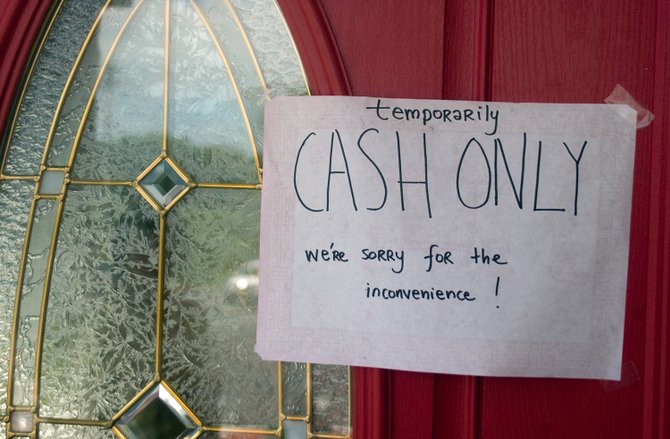 temporarily
CASH ONLY
we're sorry for the
inconvenience !